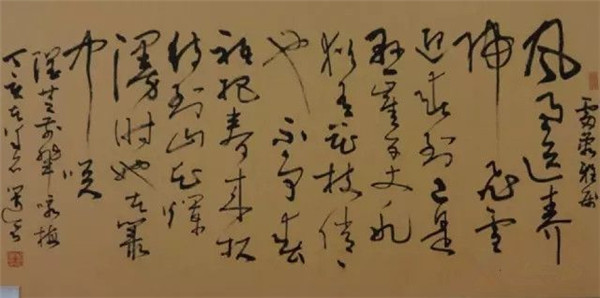 風雨送春
归 飞雪
迎春到 已是
悬崖百丈冰
犹有花枝俏俏
也 不争春
祗把春来报
待到山花烂
漫时她在叢
中笑
润芝前辈咏梅
丁亥